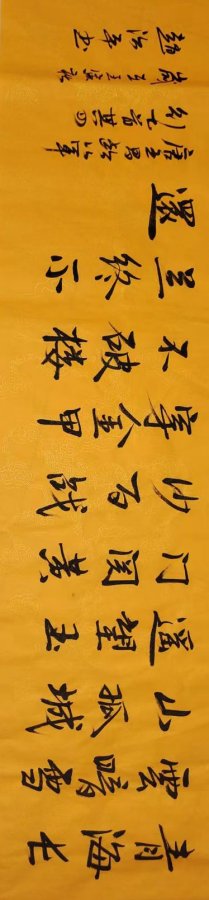 青海长
雲暗雪
山孤城
遥望玉
门関黄
沙百战
穿金甲
不破楼
兰终不
還
唐王昌龄从军
行七首其四